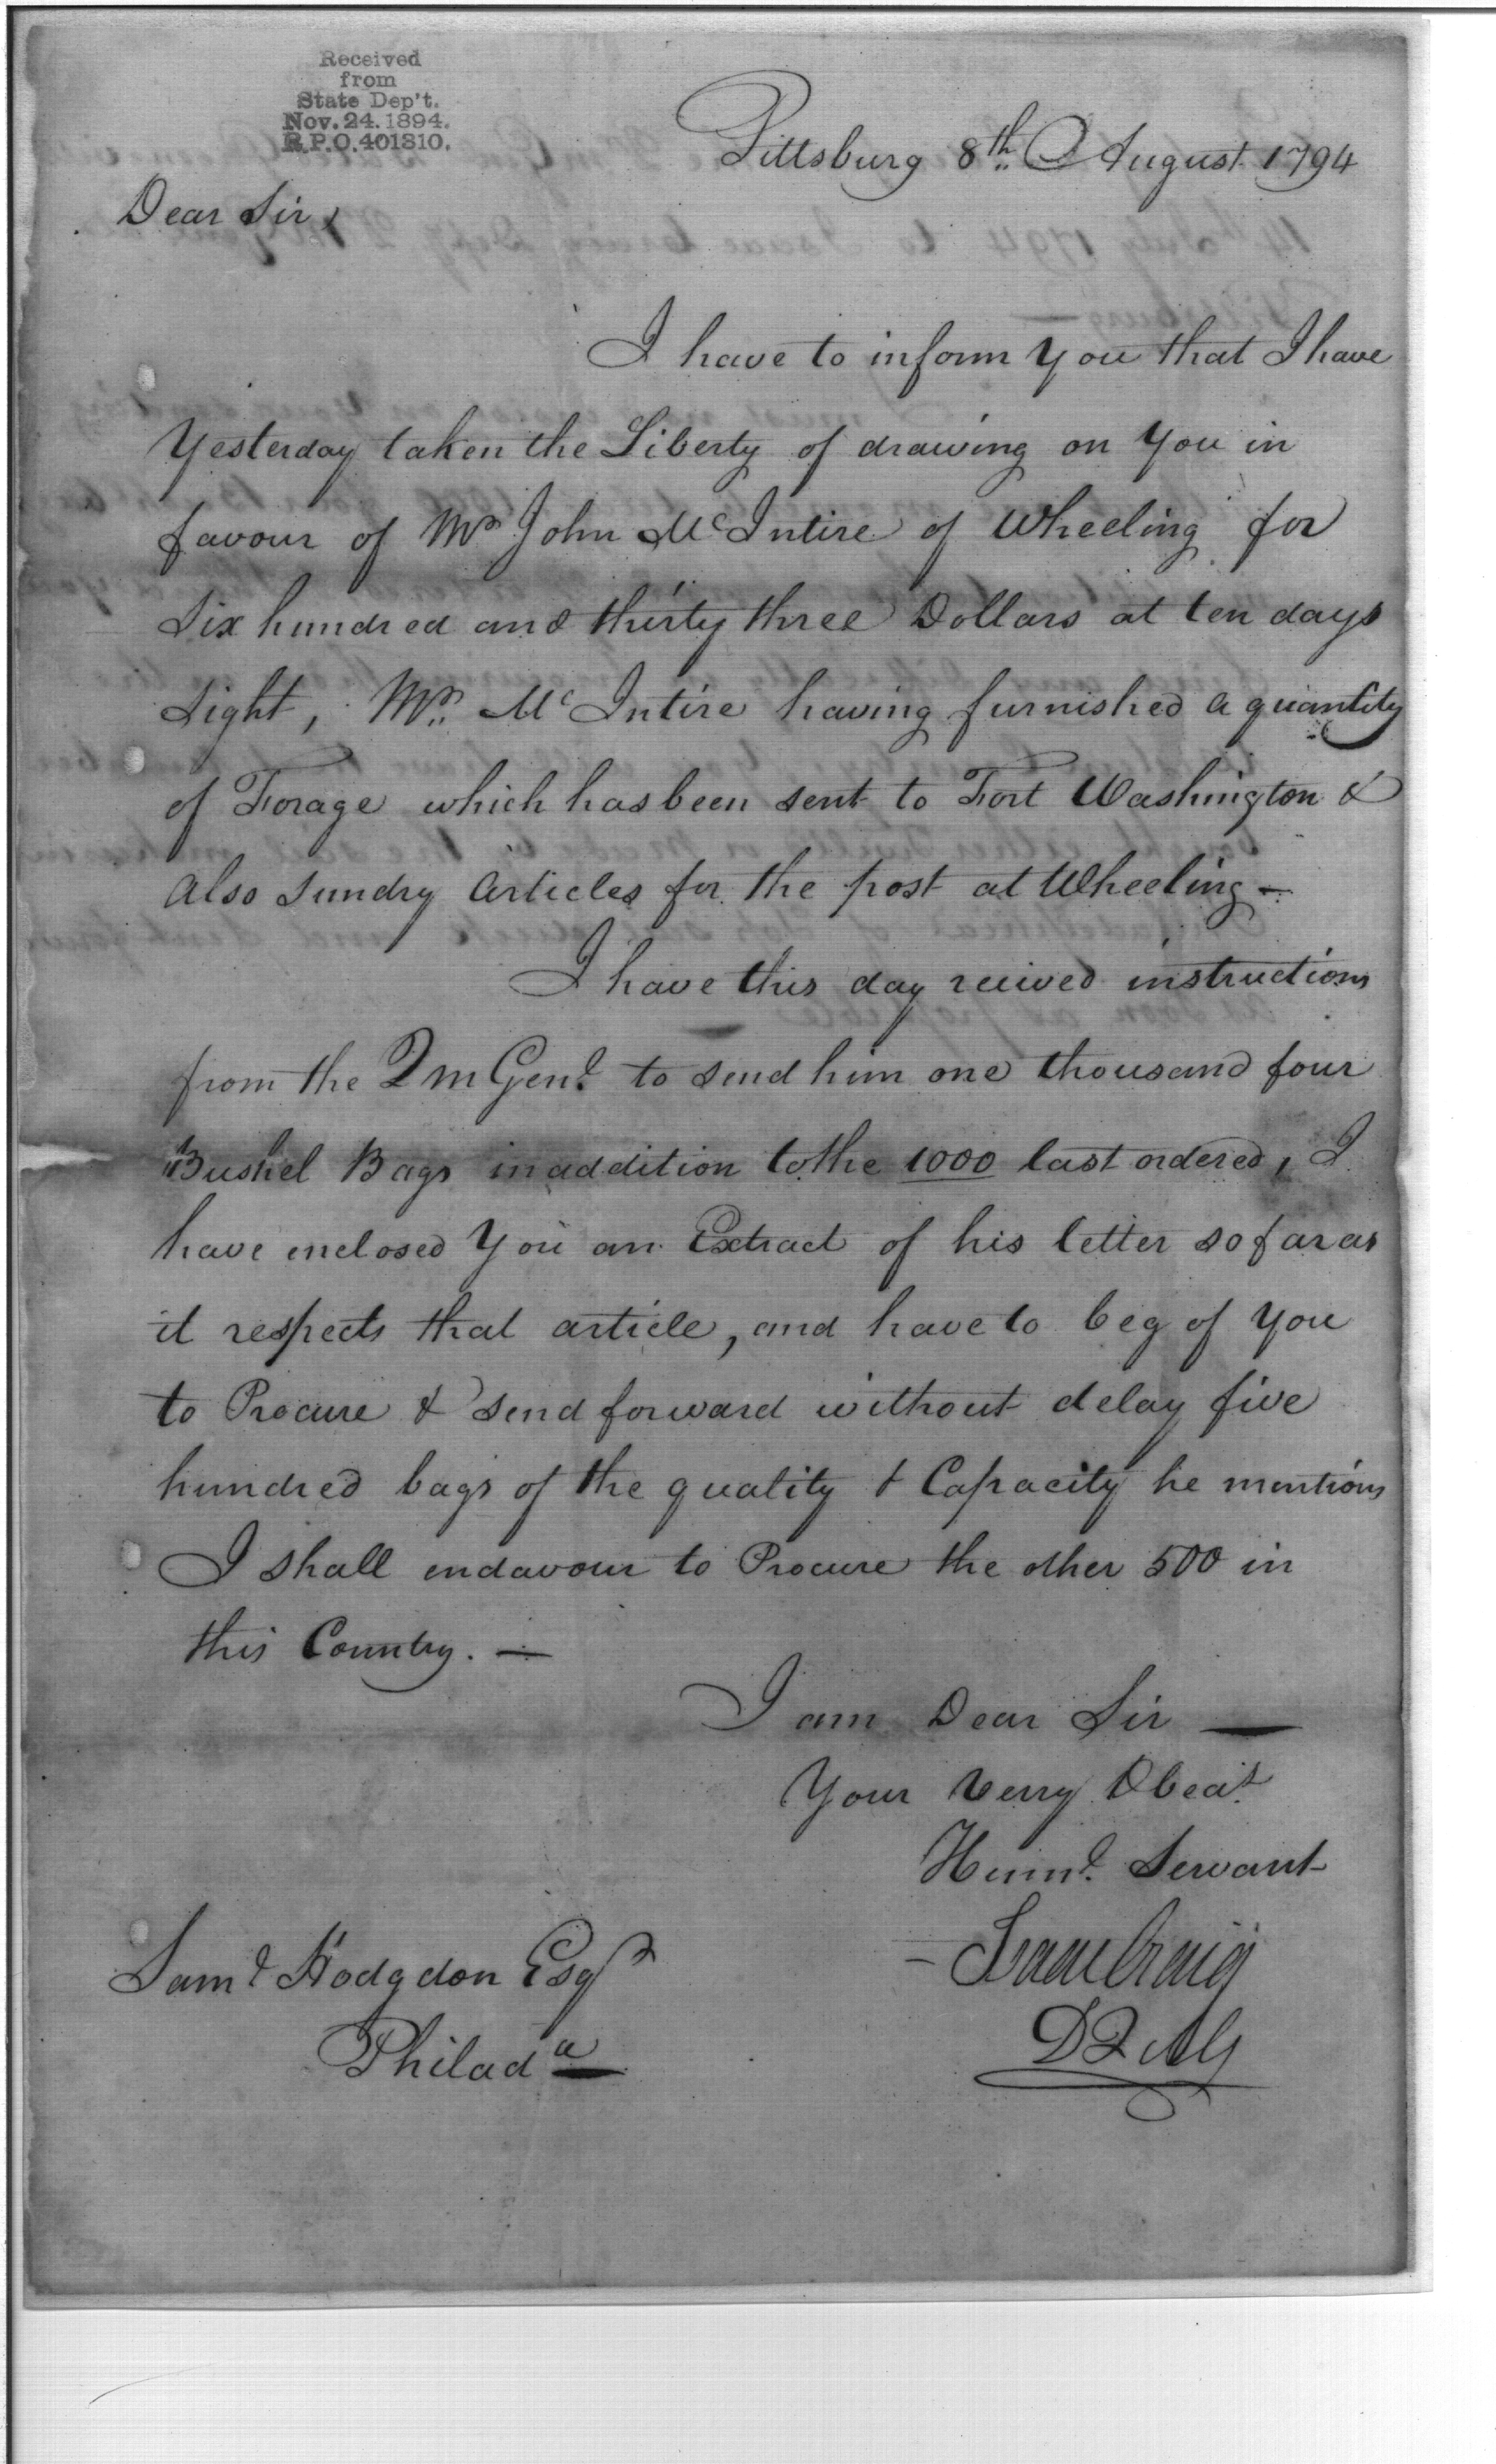 Received
from
State Dep't.
Nov. 24. 1894.
R.P.O. 401310.
Pittsburg 8th August 1794
Dear Sir,
I have to inform You that I have
Yesterday taken the Liberty of drawing on You in
favour of Mr John McIntire of Wheeling for
Six hundred and thirty three Dollars at ten days
Sight, Mr. McIntire having furnished a quantity
of Forage which has been sent to Fort Washington &
also Sundry Articles for the post at Wheeling —
I have this day reiived instructions
from the Q m Genl. to send him one thousand four
Bushel Bags in addition to the 1000 last ordered, I
have enclosed You an Extract of his letter so far as
it respects that article, and have to beg of You
to Procure & send forward without delay five
hundred bags of the quality & Capacity he mentions
I shall endavour to Procure the other 500 in
this Country. —
I am Dear Sir —
Your Verry Obedt.
Huml. Servant
– Isaac Craig
DQMG
Saml Hodgdon Esqr
Philada